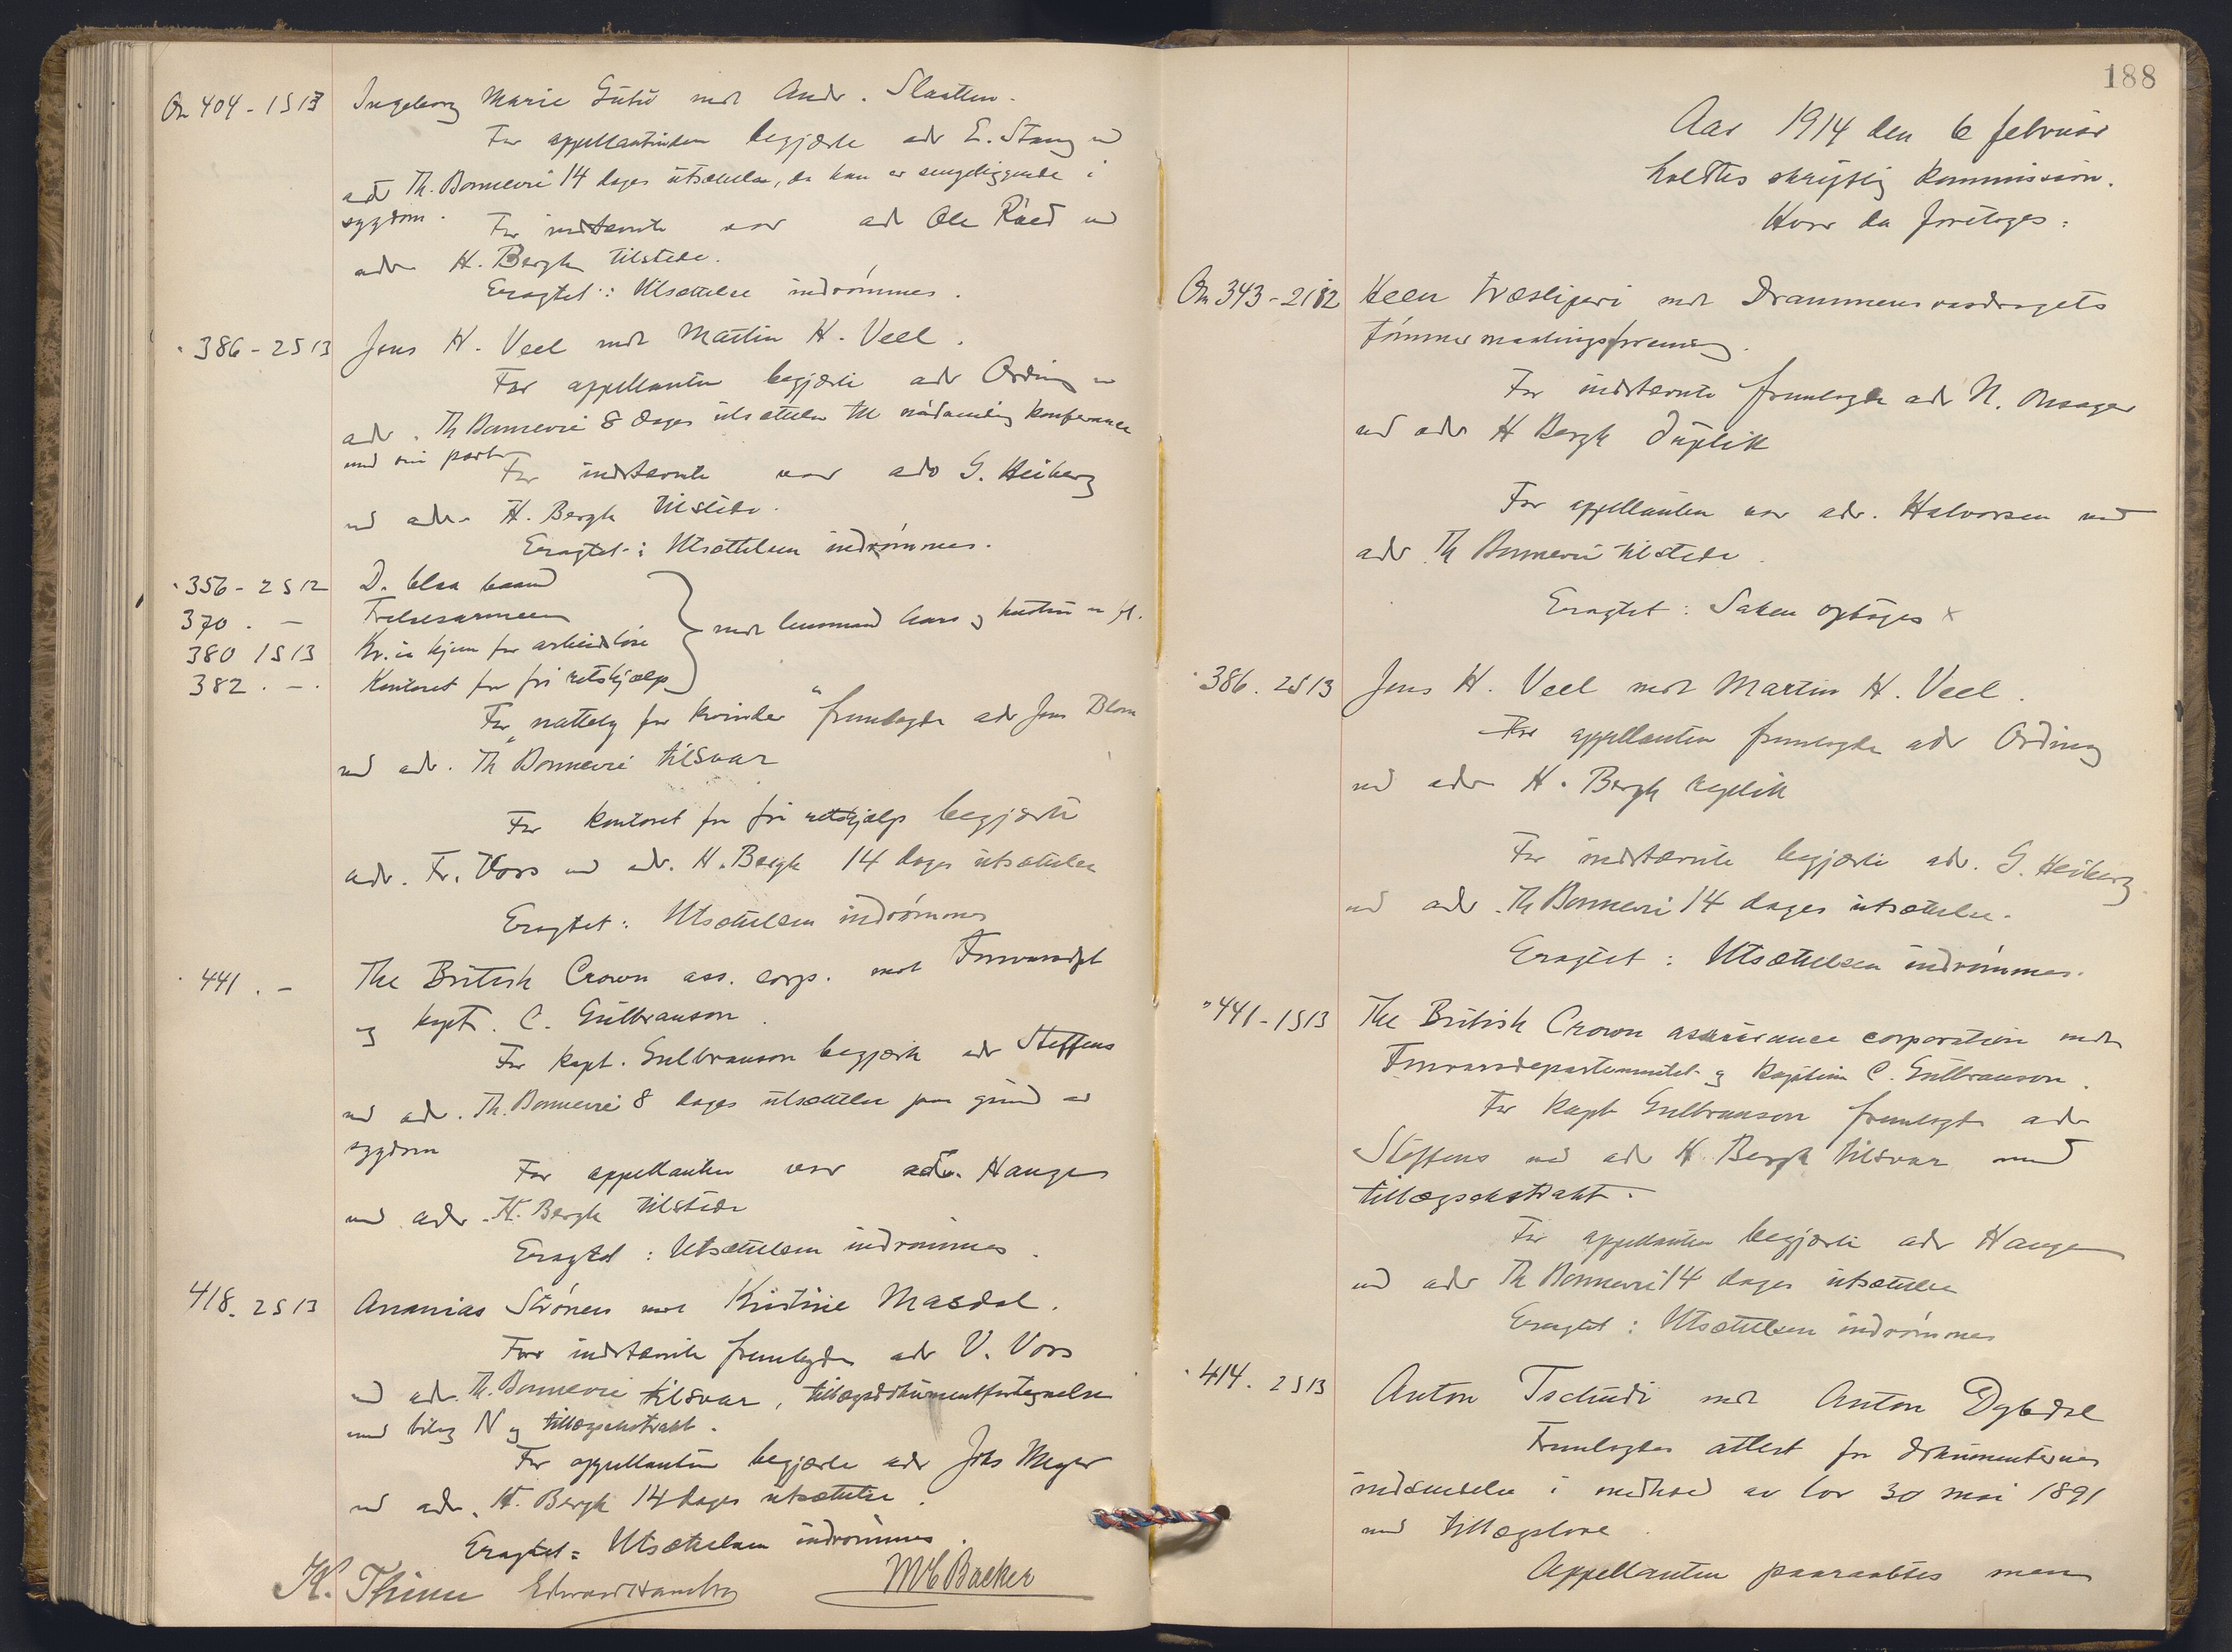 On 404 - 1 S 13 Ingeborg Marie Gutu mot Andr. Slaatten.
For appellantinden begjærte adv E. Stang ved
adv Th. Bonnevie 14 dages utsættelse, da han er sengeliggende i
sygdom.
For indstevnte var adv Ole Røed ved
adv H. Bergh tilstede.
Eragtet: Utsættelse indrømmes.
" 386 - 2 S 13 Jens H. Veel mot Martin H. Veel.
For appellanten begjærte adv Ording ved
adv. Th Bonnevie 8 dages utsættelse til nødvendig konferance
med sin part
For indstevnte var adv G. Heiberg
ved adv H. Bergh tilstede.
Eragtet: Utsættelsen indrømmes.
" 356 - 2 S 12 D. blaa baand
370 . - Frelsesarmeen
380 1 S 13 Kr.ia hjem for arbeidsløse
382 . - . Kontoret for fri retshjælp
mot lensmand Aars og hustru m fl.
For "nattely for kvinder" fremlagde adv Jens Blom
ved adv. Th Bonnevie tilsvar
For kontoret for fri retshjælp begjærte
adv. Fr. Vors ved adv. H. Bergh 14 dages utsættelse
Eragtet: Utsættelsen indrømmes
" 441 . - The British Crown ass. corp. mot Forsvarsdpt
og kapt. C. Gulbranson.
For kapt. Gulbranson begjærte adv Steffens
ved adv. Th. Bonnevie 8 dages utsættelse paa grund av
sygdom
For appellanten var adv. Hauge
ved adv. H. Bergh tilstede
Eragtet: Utsættelsen indrømmes.
418. 2 S 13 Ananias Strønen mot Kristine Masdal.
For indstevnte fremlagde adv V. Vors
ved adv. Th. Bonnevie tilsvar, tillægsdokumentfortegnelse
med bilag N og tillægsekstrakt.
For appellanten begjærte adv Johs Meyer
ved adv. H. Bergh 14 dages utsættelse.
Eragtet: Utsættelsen indrømmes.
K. Thinn Edvard Hambro MC Backer
188
Aar 1914 den 6 februar
holdtes skriftlig kommission.
Hvor da foretoges:
On 343 - 2 S 12 Heen træsliperi mot Drammensvasdragets
tømmermaalingsforening.
For indstevnte fremlagde adv N. Onsager
ved adv H Bergh duplik
For appellanten var adv. Halvorsen ved
adv. Th Bonnevie tilstede.
Eragtet: Saken optages x
" 386. 2 S 13 Jens H. Veel mot Martin H. Veel.
For appellanten fremlagde adv Ording
ved adv H. Bergh replik
For indstevnte begjærte adv. G. Heiberg
ved adv. Th Bonnevie 14 dages utsættelse.
Eragtet: Utsættelsen indrømmes.
" 441 - 1 S 13 The British Crown assurance corporation mot
Forsvarsdepartementet og kaptein C. Gulbranson.
For kapt Gulbranson fremlagde adv
Steffens ved adv H. Bergh tilsvar med
tillægsekstrakt.
For appellanten begjærte adv Hauge
ved adv Th Bonnevie 14 dages utsættelse
Eragtet: Utsættelsen indrømmes
" 414. 2 S 13 Anton Tschudi mot Anton Dybdal
Fremlagdes attest for dokumenternes
indsendelse i medhold av lov 30 mai 1891
med tillægslove.
Appellanten paaraabtes men